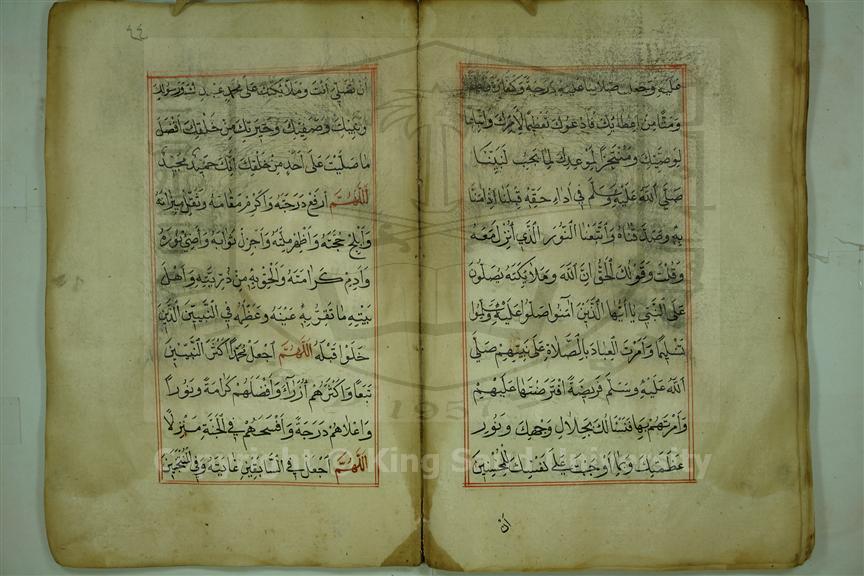 عليه وجعلت صلاتنا عليه درجة وكفارة
ومنا من اعطائك فادعوك تعظيما لامرك واتباعا
لوصيتك ومنتجزا لموعدك لما يجب لنبينا
صلى الله عليه وسلم في اداء حقه قبلنا اذ امنا
به وصدقناه واتبعنا النور الذي انزل معه
وقلت وقولك الحق ان الله وملائكته يصلون
على النبي يا ايها الذين آمنوا صلوا عليه وسلموا
تسليما وامرت العباد بالصلاة على نبيهم صلى
الله عليه وسلم فريضة افترضتها عليهم
وامرتهم بها فنسالك بجلال وجهك ونور
عظمتك وبما اوجبت على نفسك للمحسنين
ان
٤٤
ان تصلي انت وملائكتك على محمد عبدك ورسولك
ونبيك وصفيك وخيرتك من خلقك افضل
ما صليت على احد من خلقك انك حميد مجيد
اللهم ارفع درجته واكرم مقامه وثقل ميزانه
وابلج حجته واظهر ملته واجزل ثوابه واضئ نوره
وادم كرامته والحق به من ذريته واهل
بيته ما تقر به عينه وعظمه في النبيين الذين
خلوا قبله اللهم اجعل محمدا اكثر النبيين
تبعا واكثرهم ازراء وافضلهم كرامة ونورا
واعلاهم درجة وافسحهم في الجنة منزلا
اللهم اجعل في السابقين غايته وفي المنتخبين
Copyright © King Saud University
1957